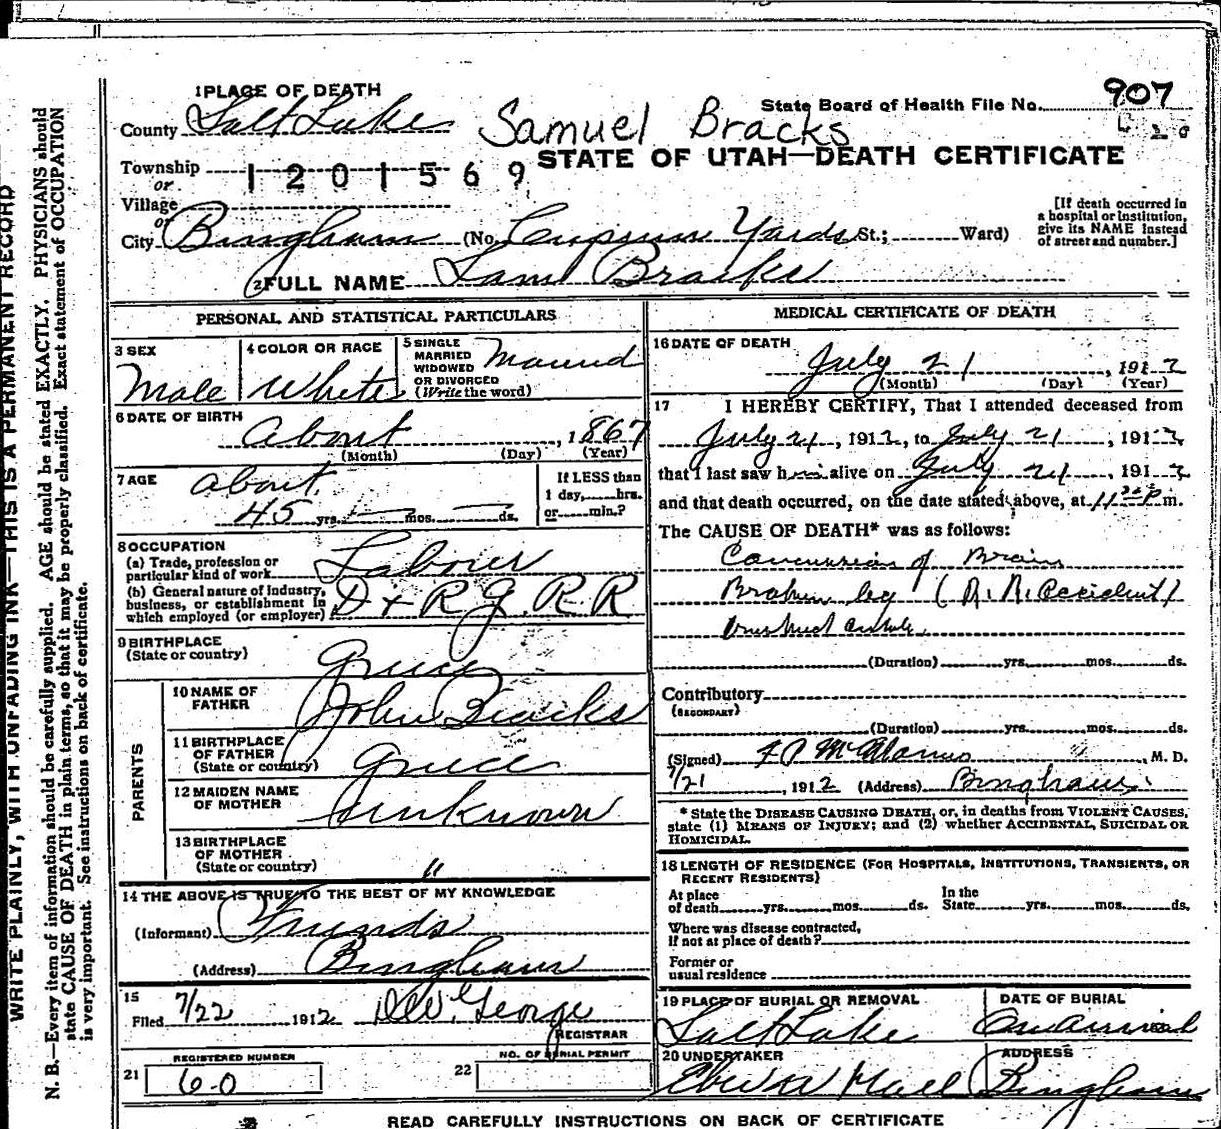 1 PLACE OF DEATH
State Board of Health File No. 907
County Salt Lake
Samuel Bracks
STATE OF UTAH—DEATH CERTIFICATE
Township
or
1201569
Village
or
City Bingham (No. Yards St.; Ward)
[If death occurred in
a hospital or institution,
give its NAME instead
of street and number.]
2 FULL NAME Sam Bracks
PERSONAL AND STATISTICAL PARTICULARS
3 SEX
Male
4 COLOR OR RACE
White
5 SINGLE
MARRIED
WIDOWED
OR DIVORCED
(Write the word)
Married
6 DATE OF BIRTH
About, 1867
(Month) (Day) (Year)
7 AGE
about
45 yrs. — mos. — ds.
If LESS than
1 day, hrs.
or min.?
8 OCCUPATION
(a) Trade, profession or
particular kind of work Laborer
(b) General nature of industry,
business, or establishment in
which employed (or employer) D & R G. R R
9 BIRTHPLACE
(State or country)
Greece
PARENTS
10 NAME OF
FATHER
John Bracks
11 BIRTHPLACE
OF FATHER
(State or country)
Greece
12 MAIDEN NAME
OF MOTHER
Unknown
13 BIRTHPLACE
OF MOTHER
(State or country)
"
14 THE ABOVE IS TRUE TO THE BEST OF MY KNOWLEDGE
(Informant) Friends
(Address) Bingham
15
Filed 7/22 1912 George
REGISTRAR
REGISTERED NUMBER
21 60
NO. OF BURIAL PERMIT
22
MEDICAL CERTIFICATE OF DEATH
16 DATE OF DEATH
July 21, 1912
(Month) (Day) (Year)
17 I HEREBY CERTIFY, That I attended deceased from
July 21, 1912, to July 21, 1912
that I last saw him alive on July 21, 1912
and that death occurred, on the date stated above, at 11 P m.
The CAUSE OF DEATH* was as follows:
Concussion of Brain
Broken leg (R. R. Accident)
Crushed ankle
(Duration) yrs. mos. ds.
Contributory
(SECONDARY)
(Duration) yrs. mos. ds.
(Signed) M. D.
7/21, 1912 (Address) Bingham
* State the DISEASE CAUSING DEATH, or, in deaths from VIOLENT CAUSES,
state (1) MEANS OF INJURY; and (2) whether ACCIDENTAL, SUICIDAL OR
HOMICIDAL.
18 LENGTH OF RESIDENCE (FOR HOSPITALS, INSTITUTIONS, TRANSIENTS, OR
RECENT RESIDENTS)
At place
of death yrs. mos. ds.
In the
State yrs. mos. ds.
Where was disease contracted,
if not at place of death?
Former or
usual residence
19 PLACE OF BURIAL OR REMOVAL
Salt Lake
DATE OF BURIAL
On Arrival
20 UNDERTAKER
Hall
ADDRESS
Bingham
READ CAREFULLY INSTRUCTIONS ON BACK OF CERTIFICATE
WRITE PLAINLY, WITH UNFADING INK—THIS IS A PERMANENT RECORD
N. B.—Every item of information should be carefully supplied. AGE should be stated EXACTLY. PHYSICIANS should
state CAUSE OF DEATH in plain terms, so that it may be properly classified. Exact statement of OCCUPATION
is very important. See instructions on back of certificate.